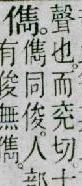 聲也。而兖切十
儁。有儁同俊。人部
有俊無儁。